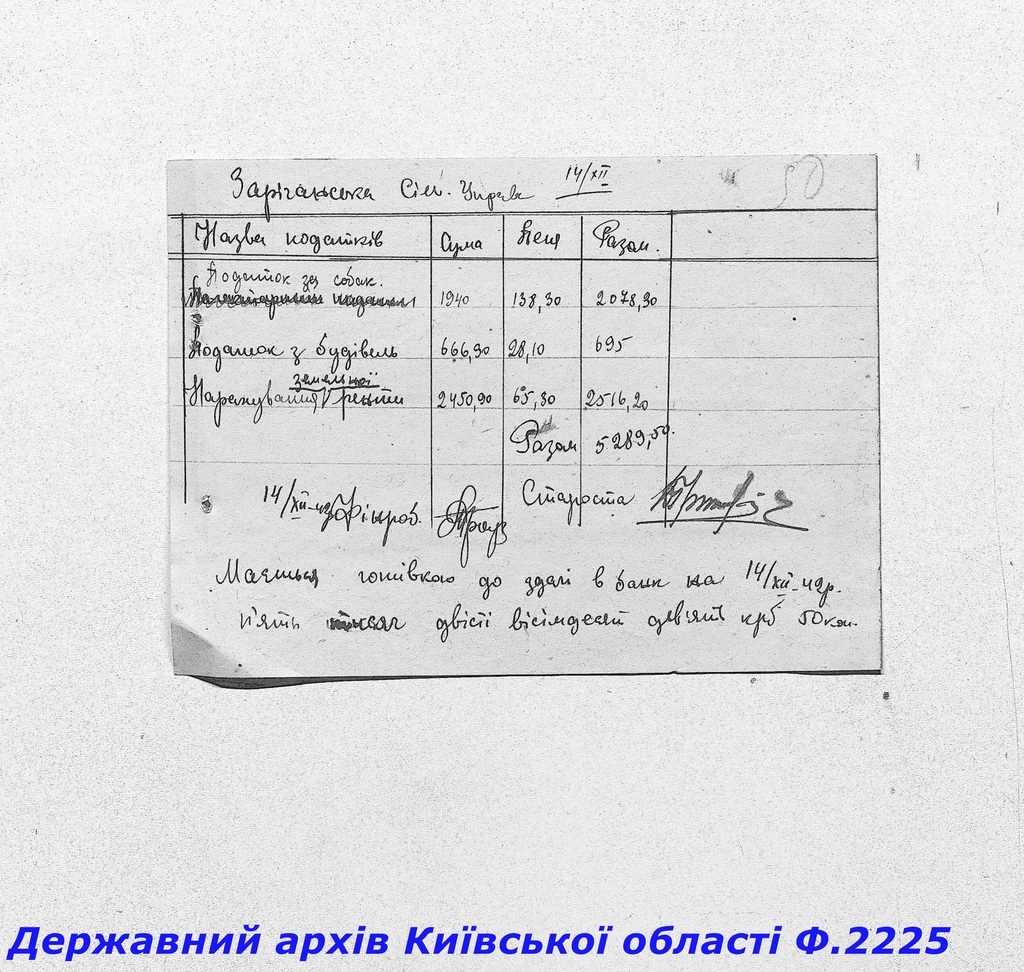 Зарічанська Сіль. Управа 14/XII 50
Назва податків Сума Пеня Разом.
Податок за собак.
1940 138,30 2078,30
Податок з будівель 666,90 28,10 695
земельної
Нарахування ренти 2450,90 65,30 2516,20
Разом 5289,50.
14/XII-42 Фінроб. Староста
Мається готівкою до здачі в банк на 14/XII-42р.
п'ять тисяч двісті вісімдесят дев'ять крб 50 коп.
Державний архів Київської області Ф.2225